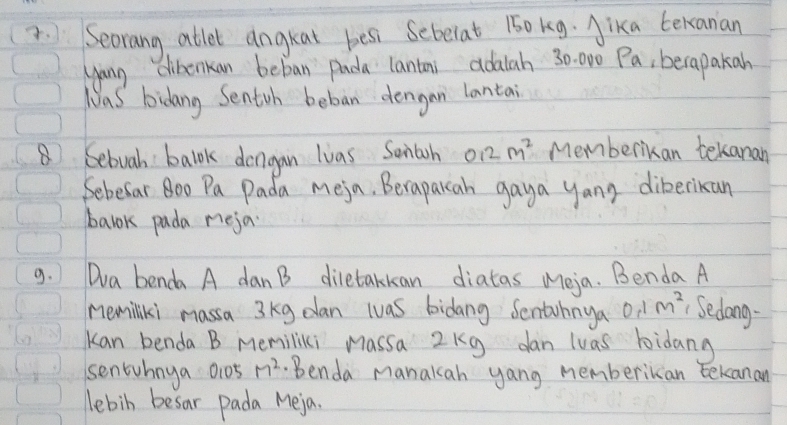 7. Seorang atlet angkat besi seberat 150 kg. Jika tekanan
yang diberikan beban pada lantai adalah 30.000 Pa, berapakah
luas bidang sentuh beban dengan lantai
8 Sebuah balok dengan luas sentuh 0,2 m² memberikan tekanan
sebesar 800 Pa pada meja. Berapakah gaya yang diberikan
balok pada meja
9. Dua benda A dan B diletakkan diatas meja. Benda A
memiliki massa 3 kg dan luas bidang sentuhnya 0,1 m², sedang-
kan benda B memiliki massa 2 kg dan luas bidang
sentuhnya 0,05 m². Benda manakah yang memberikan tekanan
lebih besar pada meja.